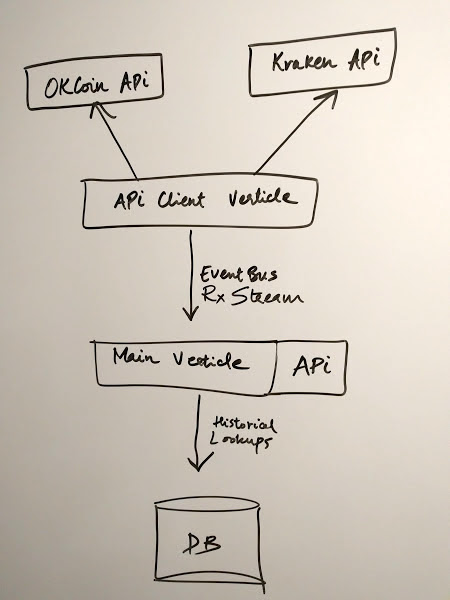 OKCoin APi
Kraken APi
APi Client Verticle
EventBus
Rx Stream
Main Verticle
APi
Historical
Lookups
DB